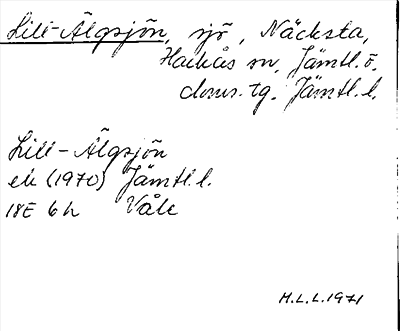 Lill-Älgsjön, sjö, Näcksta,
Hackås sn, Jämtl. ö.
doms. tg. Jämtl. l.
Lill-Älgsjön
ek (1970) Jämtl. l.
18E 6h Våle
M.L.L. 1971